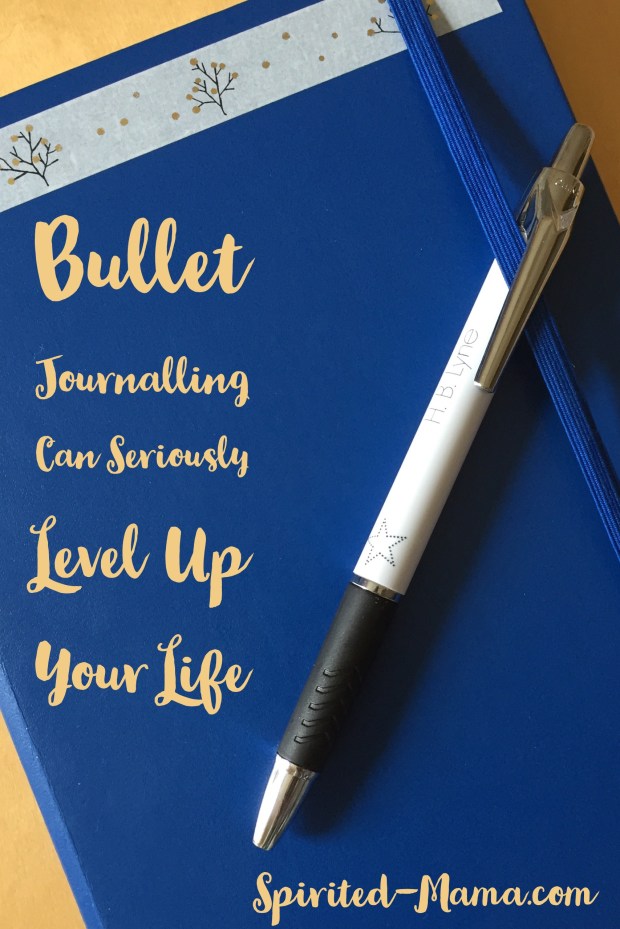 Bullet
Journalling
Can Seriously
Level Up
Your Life
H. B. Lyne
Spirited-Mama.com